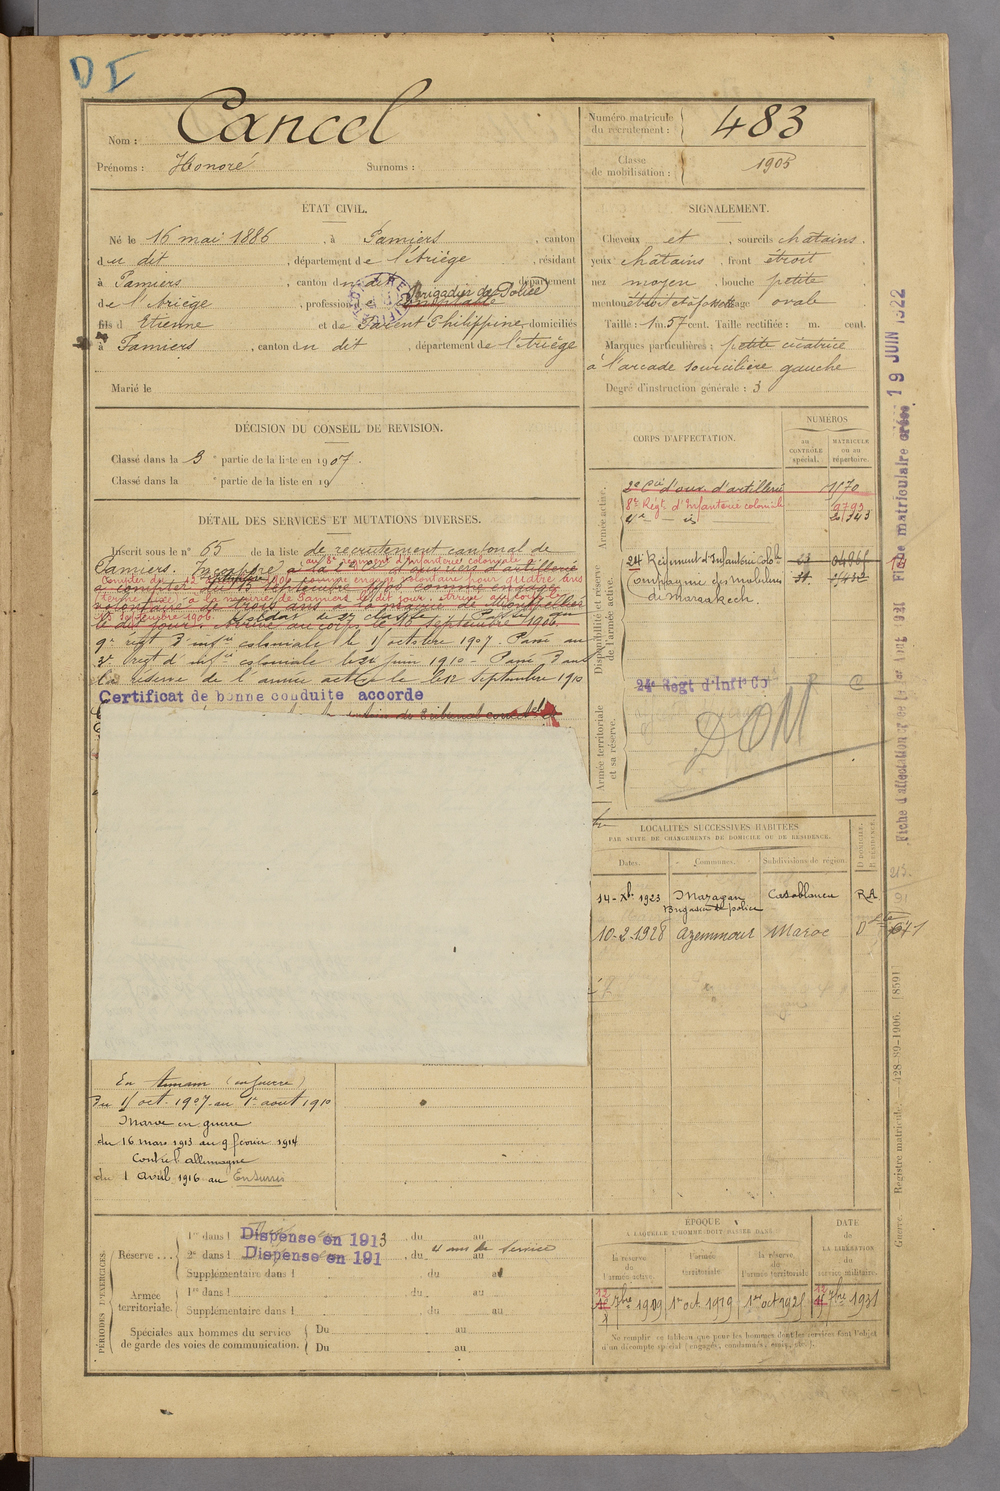 D I
Nom : Cancel
Prénoms : Honoré Surnoms :
Numéro matricule du recrutement : 483
Classe de mobilisation : 1905
ÉTAT CIVIL.
Né le 16 mai 1886, à Pamiers, canton
du dit, département de l'Ariège, résidant
à Pamiers, canton du dit, département
de l'Ariège, profession d Brigadier de Police
fils d Etienne et de Parent Philippine, domiciliés
à Pamiers, canton du dit, département de l'Ariège
Marié le
SIGNALEMENT.
Cheveux et, sourcils chatains.
yeux chatains, front étroit,
nez moyen, bouche petite
menton étroit et à fossette visage ovale
Taille : 1 m. 57 cent. Taille rectifiée : m. cent.
Marques particulières : petite cicatrice
à l'arcade sourcilière gauche
Degré d'instruction générale : 3
DÉCISION DU CONSEIL DE REVISION.
Classé dans la 3e partie de la liste en 1907.
Classé dans la e partie de la liste en 19
DÉTAIL DES SERVICES ET MUTATIONS DIVERSES.
Inscrit sous le n° 65 de la liste de recrutement cantonal de
Pamiers. Incorporé à la 2e Cie d'ouvriers d'artillerie
au 8e régiment d'Infanterie coloniale
à compter du 15 septembre 1906 comme engagé
compter du 12 septembre 1906 comme engagé volontaire pour quatre ans
volontaire de trois ans à la mairie de Montpellier
à la mairie de Pamiers le dit jour. Arrivé au corps le
le dit jour. Arrivé au corps le septembre 1906.
septembre 1906. Soldat de 2e classe Passé au
9e régt d'infie coloniale le 1 octobre 1907. Passé au
3e régt d'infie coloniale le juin 1910 - Passé dans
la réserve de l'armée active le 12 Septembre 1910
Certificat de bonne conduite accordé
CORPS D'AFFECTATION.
NUMÉROS
au CONTRÔLE spécial.
MATRICULE ou au répertoire.
Armée active.
2e Cie d'ouv. d'artillerie 1170
8e Régt d'Infanterie coloniale 9793
4e — id
Disponibilité et réserve de l'armée active.
24e Régiment d'Infanterie Colo
Compagnie des
de Marrakech.
Armée territoriale et sa réserve.
24e Regt d'Infie Col C
DOM
Fiche d'affectation
Fiche matriculaire créée 19 JUIN 1922
LOCALITÉS SUCCESSIVES HABITÉES
PAR SUITE DE CHANGEMENTS DE DOMICILE OU DE RÉSIDENCE.
Dates. Communes. Subdivisions de région. D DOMICILE. R RÉSIDENCE.
14-Xb 1923 Mazagan Casablanca R A
Brigadier de police
10-2-1928 Azemmour Maroc D
En Annam (en guerre)
Du 1 oct. 1907 au 1er aout 1910
Maroc en guerre
du 16 mars 1913 au 9 fevrier 1914
Contre l'allemagne
du 1 Avril 1916 au En sursis
PÉRIODES D'EXERCICES.
Réserve...
1re dans l Dispense en 1913, du au
2e dans l Dispense en 191, du 4 ans de Service au
Supplémentaire dans l du au
Armée territoriale.
1re dans l du au
Supplémentaire dans l du au
Spéciales aux hommes du service de garde des voies de communication.
Du au
Du au
ÉPOQUE
À LAQUELLE L'HOMME DOIT PASSER DANS :
la réserve de l'armée active.
l'armée territoriale.
la réserve de l'armée territoriale.
DATE de LA LIBÉRATION du service militaire.
12 7bre 1909 1er oct 1919 1er oct 1925 12 7bre 1931
Ne remplir ce tableau que pour les hommes dont les services font l'objet
d'un décompte spécial (engagés, condamnés, omis, etc.).
Guerre. — Registre matricule. — 428-89-1906. [8591]